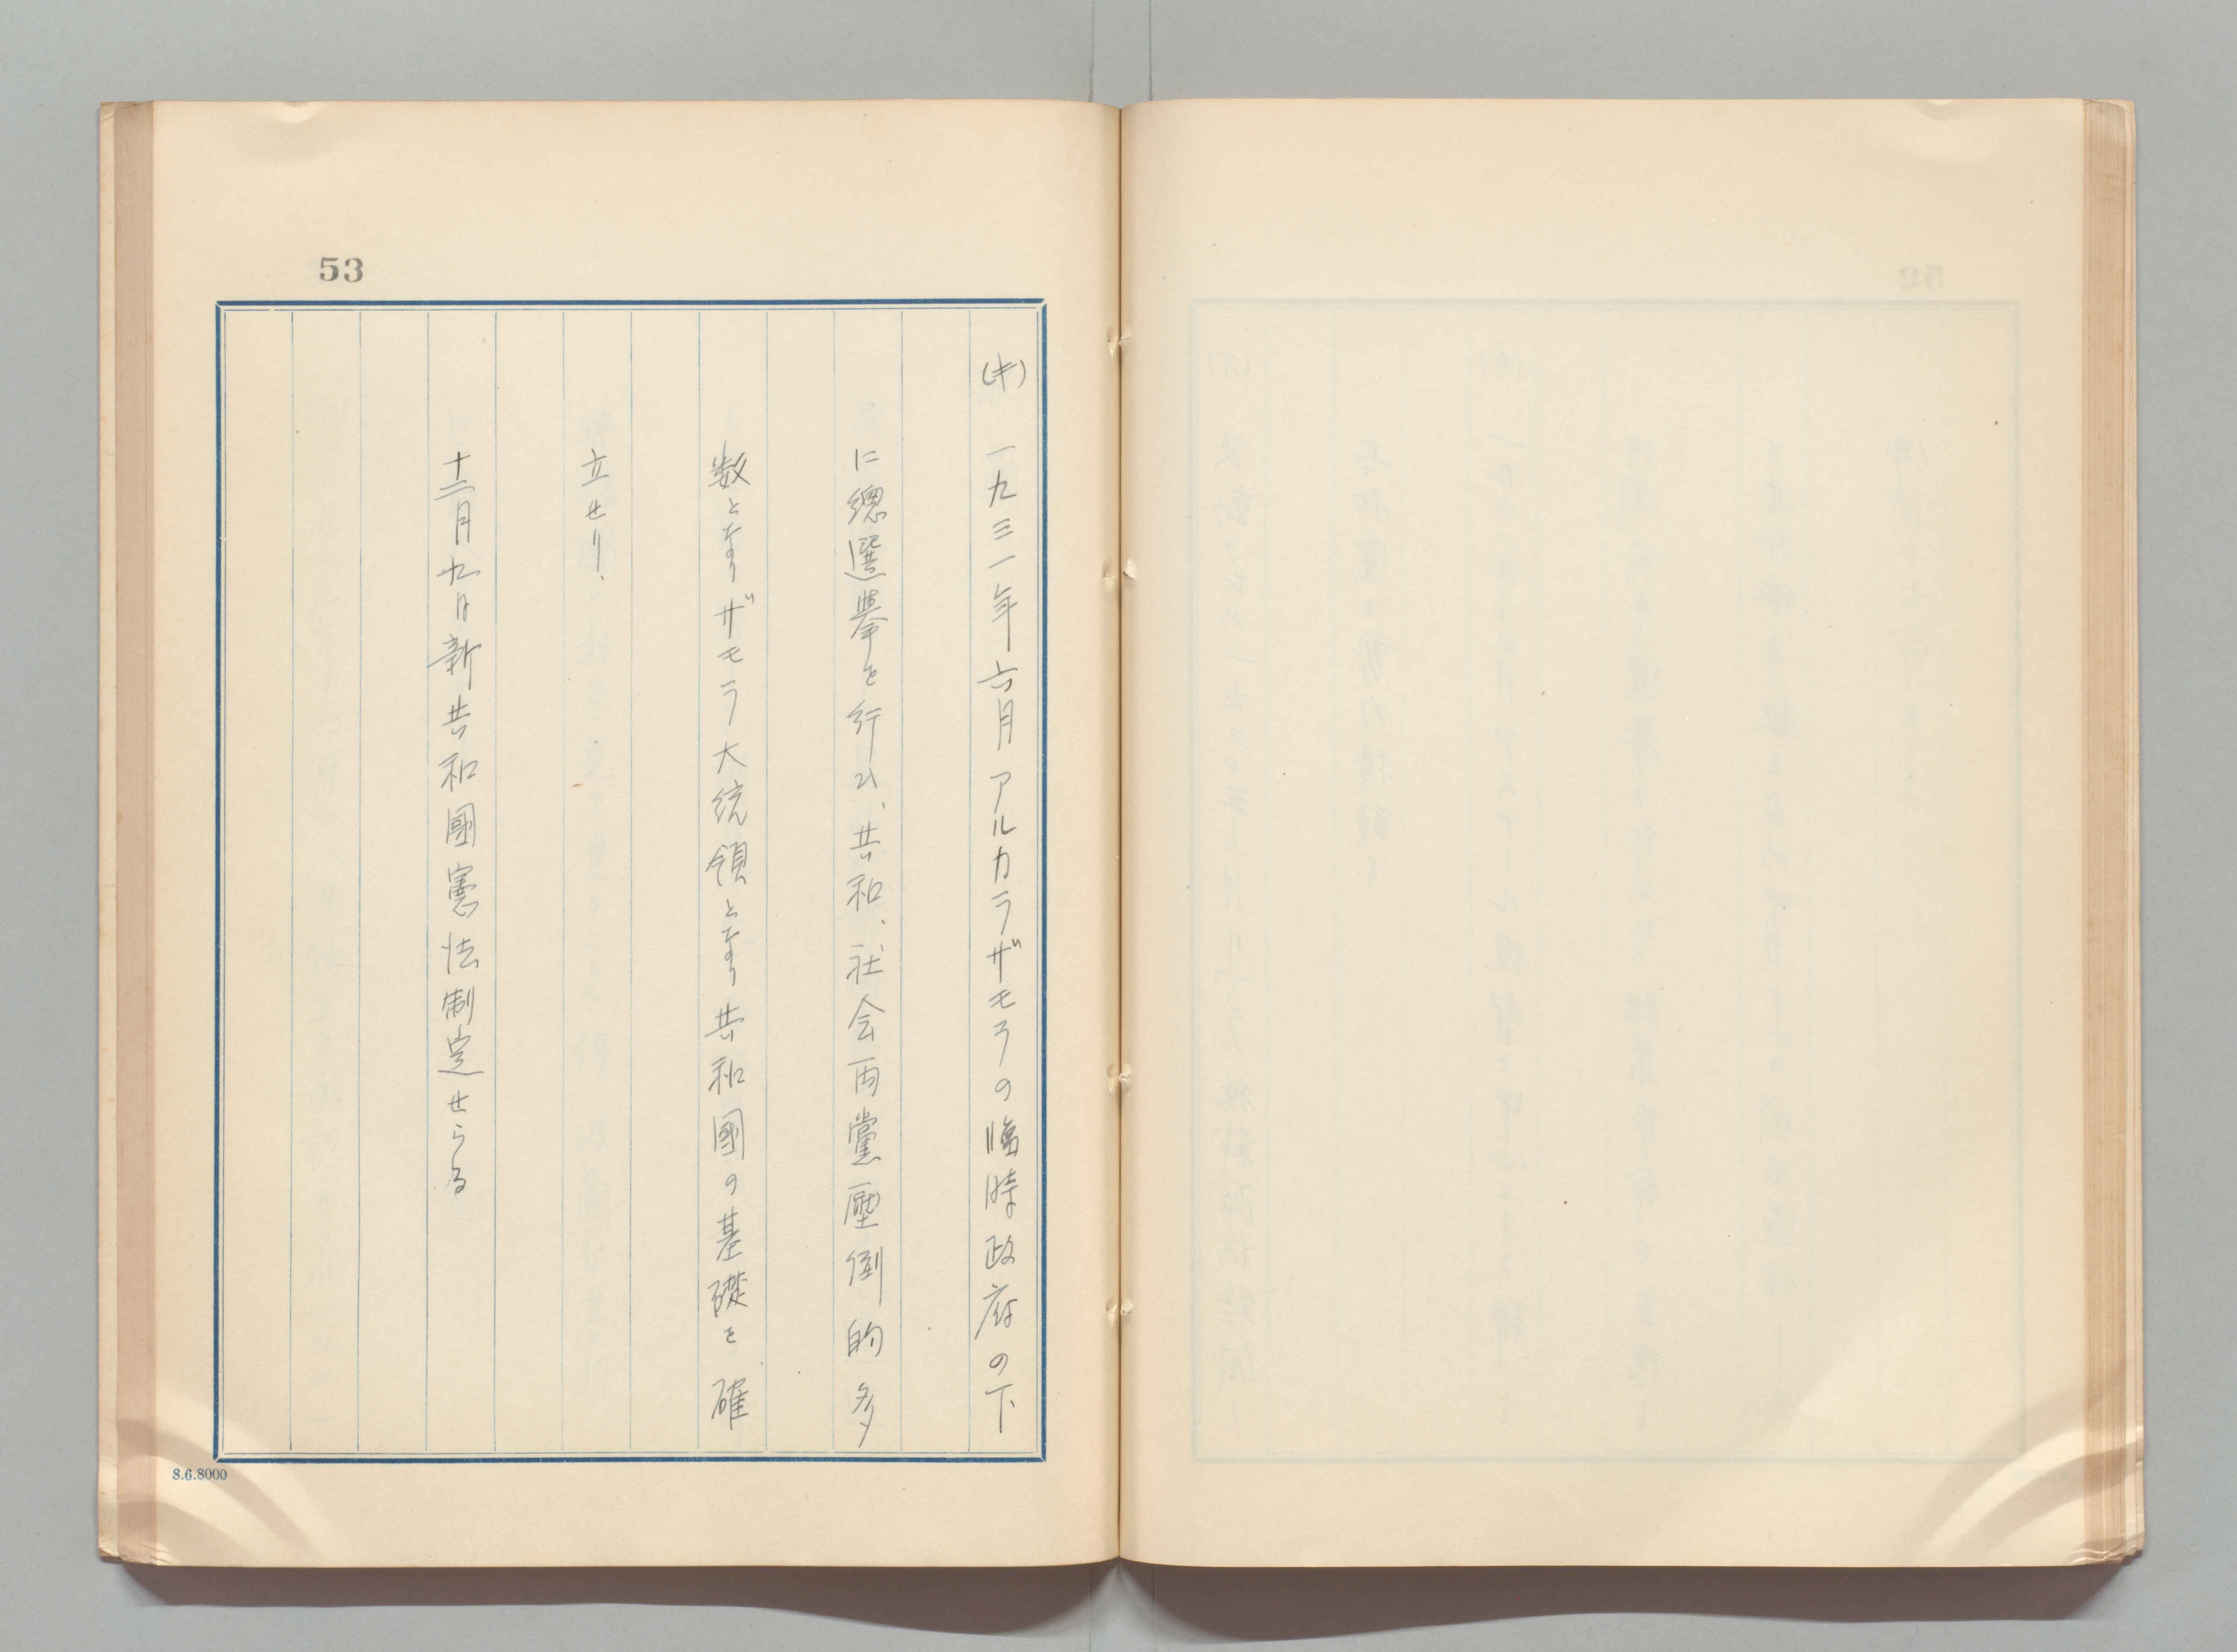 53
(キ) 一九三一年六月アルカラザモラの臨時政府の下
に總選擧を行ひ、共和、社会両黨壓倒的多
数となりザモラ大統領となり共和國の基礎を確
立せり、
十二月九日新共和國憲法制定せらる
8.6.8000